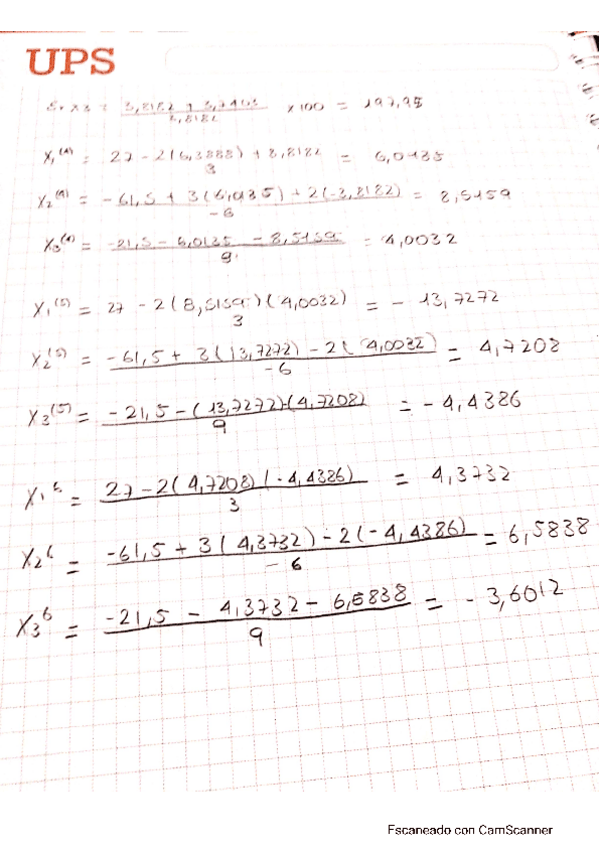 UPS
x 100 = 197,95
X₁⁽⁴⁾ = 27 - 2(6,3888) + 3,8182 / 3 = 6,0135
X₂⁽⁴⁾ = -61,5 + 3(6,0135) - 2(-3,8182) / -6 = 8,5159
X₃⁽⁴⁾ = -21,5 - 6,0135 - 8,5159 / 9 = 4,0032
X₁⁽⁵⁾ = 27 - 2(8,5159)(4,0032) / 3 = - 13,7272
X₂⁽⁵⁾ = -61,5 + 3(13,7272) - 2(4,0032) / -6 = 4,7208
X₃⁽⁵⁾ = -21,5 - (13,7272)-(4,7208) / 9 = - 4,4386
X₁⁶ = 27 - 2(4,7208)(-4,4386) / 3 = 4,3732
X₂⁶ = -61,5 + 3(4,3732) - 2(-4,4386) / -6 = 6,5838
X₃⁶ = -21,5 - 4,3732 - 6,5838 / 9 = - 3,6012
Escaneado con CamScanner